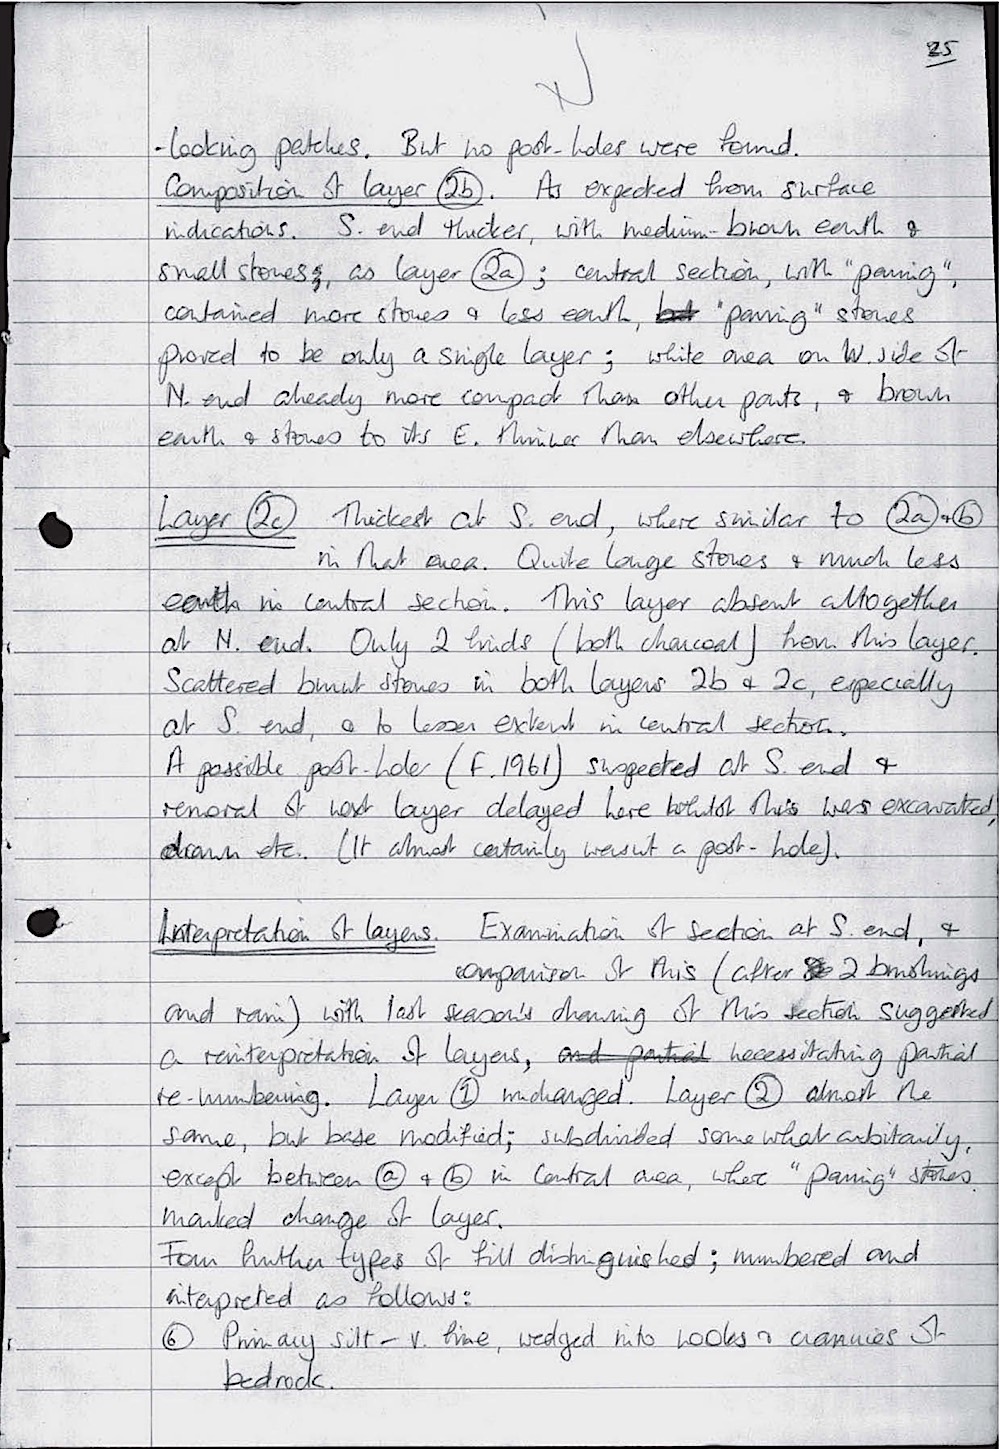 25
-looking patches. But no post-holes were found.
Composition of layer (2b). As expected from surface
indications. S. end thicker, with medium-brown earth &
small stones, as layer (2a); central section, with "paving",
contained more stones & less earth, but "paving" stones
proved to be only a single layer; white area on W. side of
N. end already more compact than other parts, & brown
earth & stones to its E. thinner than elsewhere.
Layer (2c) Thickest at S. end, where similar to (2a) & (b)
in that area. Quite large stones & much less
earth in central section. This layer absent altogether
at N. end. Only 2 finds (both charcoal) from this layer.
Scattered burnt stones in both layers 2b & 2c, especially
at S. end, & to lesser extent in central section.
A possible post-hole (F.1961) suspected at S. end &
removal of next layer delayed here whilst this was excavated,
drawn etc. (It almost certainly wasn't a post-hole).
Interpretation of layers. Examination of section at S. end, &
comparison of this (after 2 brushings
and rain) with last season's drawing of this section suggested
a reinterpretation of layers, and partial necessitating partial
re-numbering. Layer (1) unchanged. Layer (2) almost the
same, but base modified; subdivided somewhat arbitarily,
except between (a) & (b) in central area, where "paving" stones
marked change of layer.
Four further types of fill distinguished; numbered and
interpreted as follows:
(6) Primary silt - v. fine, wedged into nooks & crannies of
bedrock.